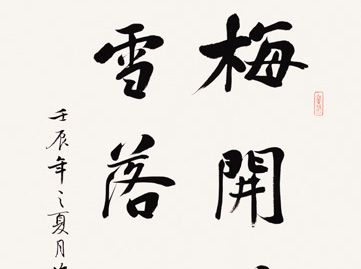 梅開
雪落
壬辰年之夏月